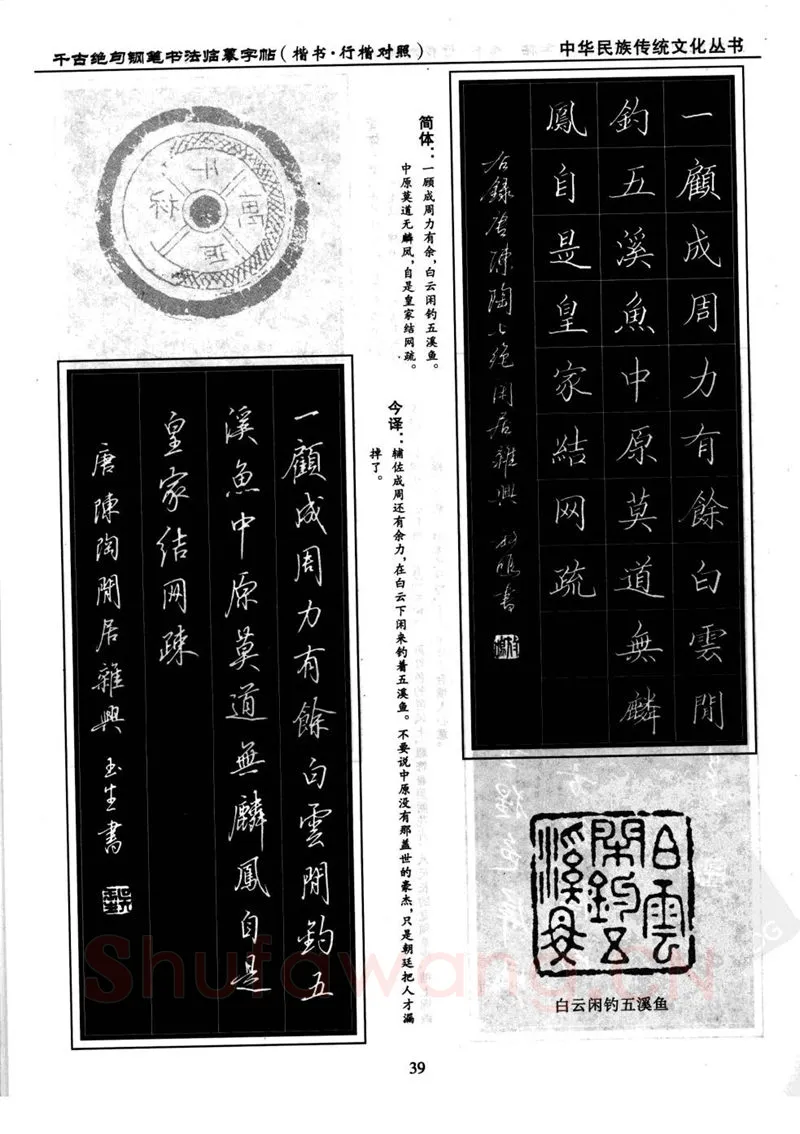 千古绝句钢笔书法临摹字帖（楷书·行楷对照）
中华民族传统文化丛书
一顧成周力有餘白雲閒
釣五溪魚中原莫道無麟
鳳自是皇家結网疏
右錄唐陳陶七绝閑居雜興
書
简体：一顾成周力有余，白云闲钓五溪鱼。
中原莫道无麟凤，自是皇家结网疏。
今译：辅佐成周还有余力，在白云下闲来钓着五溪鱼。不要说中原没有那盖世的豪杰，只是朝廷把人才漏
掉了。
一顧成周力有餘白雲閒釣五
溪魚中原莫道無麟鳳自是
皇家结网疎
唐陳陶閒居雜興 玉生書
白雲
閑釣五
溪魚
白云闲钓五溪鱼
Shufawang.CN
39